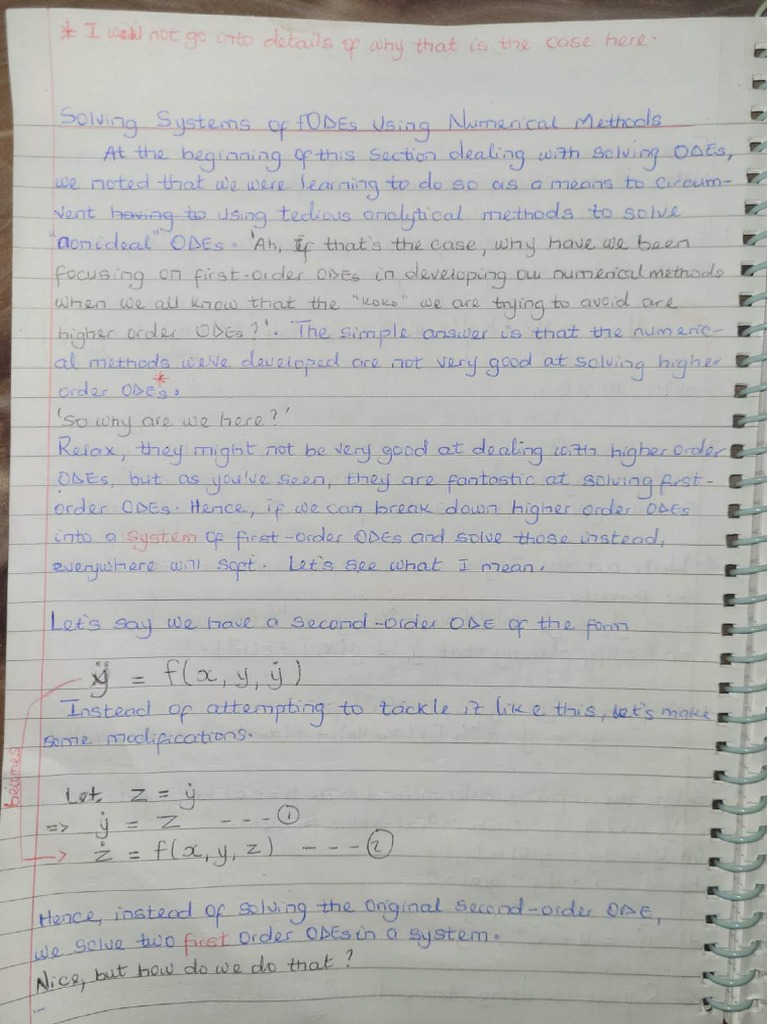 * I will not go into details of why that is the case here.
Solving Systems of fODEs Using Numerical Methods
At the beginning of this section dealing with solving ODEs,
we noted that we were learning to do so as a means to circum-
vent having to using tedious analytical methods to solve
"nonideal" ODEs. 'Ah, if that's the case, why have we been
focusing on first-order ODEs in developing our numerical methods
when we all know that the "koko" we are trying to avoid are
higher order ODEs?'. The simple answer is that the numeric-
al methods we've developed are not very good at solving higher
order ODEs*.
'So why are we here?'
Relax, they might not be very good at dealing with higher order
ODEs, but as you've seen, they are fantastic at solving first-
order ODEs. Hence, if we can break down higher order ODEs
into a system of first-order ODEs and solve those instead,
everywhere will sqrt. Let's see what I mean.
Let's say we have a second-order ODE of the form
ÿ = f(x, y, ẏ)
Instead of attempting to tackle it like this, let's make
some modifications.
becomes
Let, z = ẏ
=> ẏ = z --- ①
ż = f(x, y, z) --- ②
Hence, instead of solving the original second-order ODE,
we solve two first order ODEs in a system.
Nice, but how do we do that?